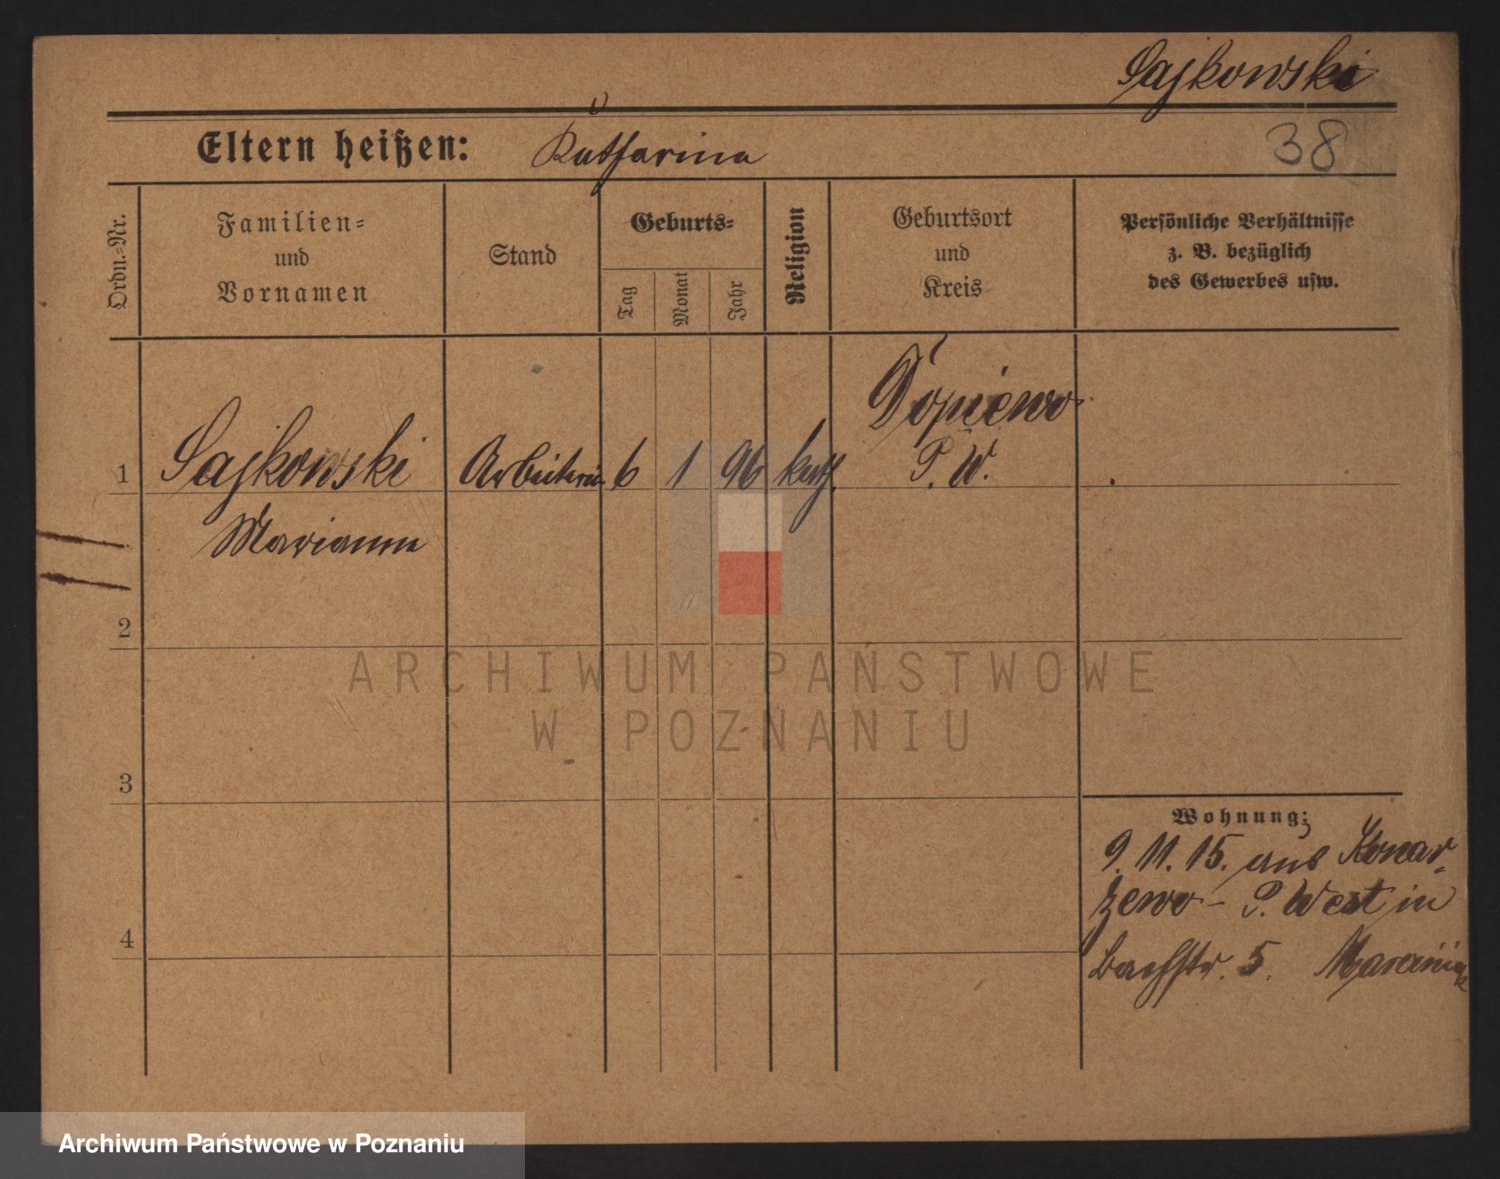 Sajkowski
Eltern heißen: Katharina
38
Ordn.-Nr.
Familien-
und
Vornamen
Stand
Geburts-
Tag
Monat
Jahr
Religion
Geburtsort
und
Kreis
Persönliche Verhältnisse
z. B. bezüglich
des Gewerbes usw.
1 Sajkowski Arbeiterin 6 1 96 kath. Dopiewo
P. W.
Marianna
2
3
4
Wohnung:
9. 11. 15. aus Konar-
zewo - P. West in
Bachstr. 5.
ARCHIWUM PAŃSTWOWE
W POZNANIU
Archiwum Państwowe w Poznaniu